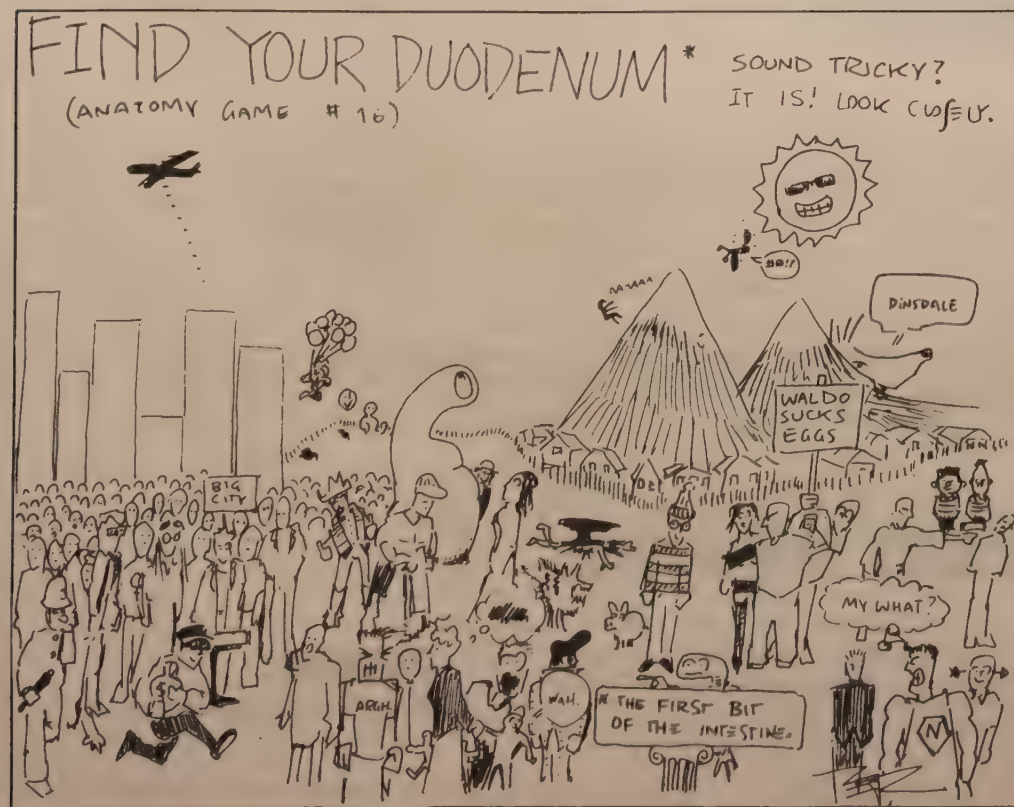 FIND YOUR DUODENUM*
(ANATOMY GAME # 16)
SOUND TRICKY?
IT IS! LOOK CLOSELY.
#@!?
DINSDALE
WALDO
SUCKS
EGGS
BIG
CITY
MY WHAT?
HI
ARGH.
WAH.
* THE FIRST BIT
OF THE INTESTINE.
N